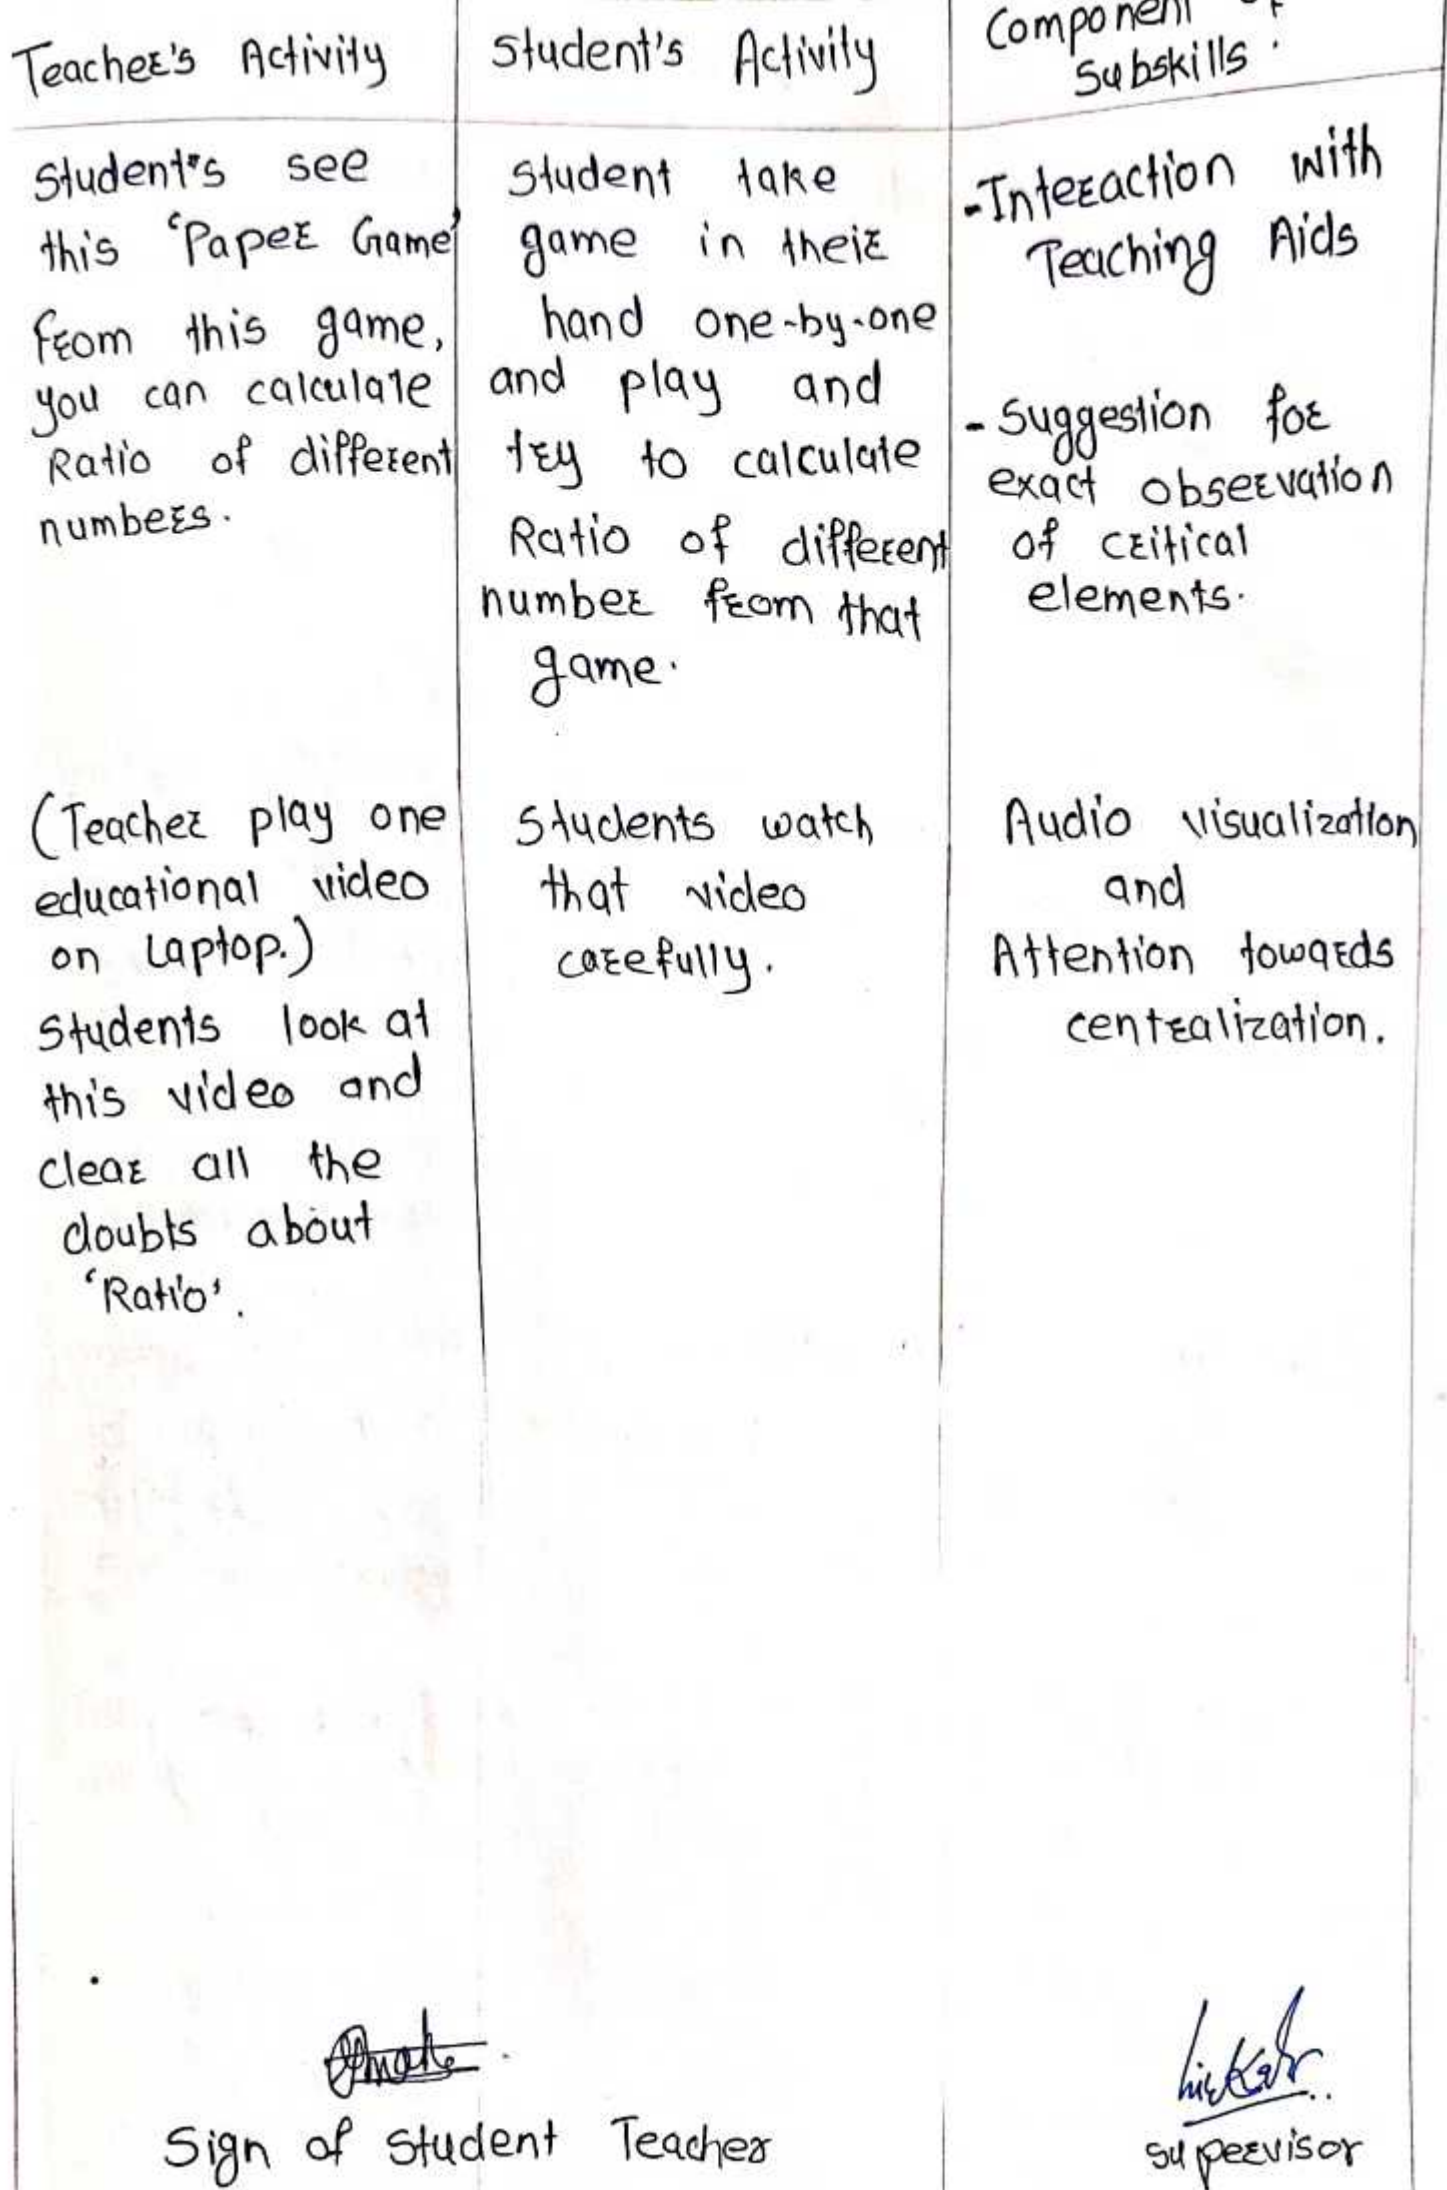 Teacher's Activity
Student's Activity
Component of
Subskills :
Student's see
this 'Paper Game'
from this game,
you can calculate
Ratio of different
numbers.
Student take
game in their
hand one-by-one
and play and
try to calculate
Ratio of different
number from that
game.
-Interaction with
Teaching Aids
- Suggestion for
exact observation
of critical
elements.
(Teacher play one
educational video
on Laptop.)
Students look at
this video and
clear all the
doubts about
'Ratio'.
Students watch
that video
carefully.
Audio visualization
and
Attention towards
centralization.
Sign of Student Teacher
supervisor